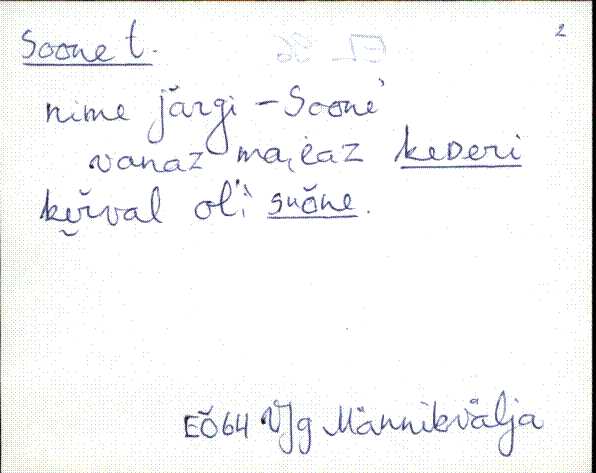 Soone t. 2
nime järgi – Soone'
vanaz majᴢaz keᴅeri
kǝ̑rval ol'i suone.
EÕ64 VJg Männikvälja